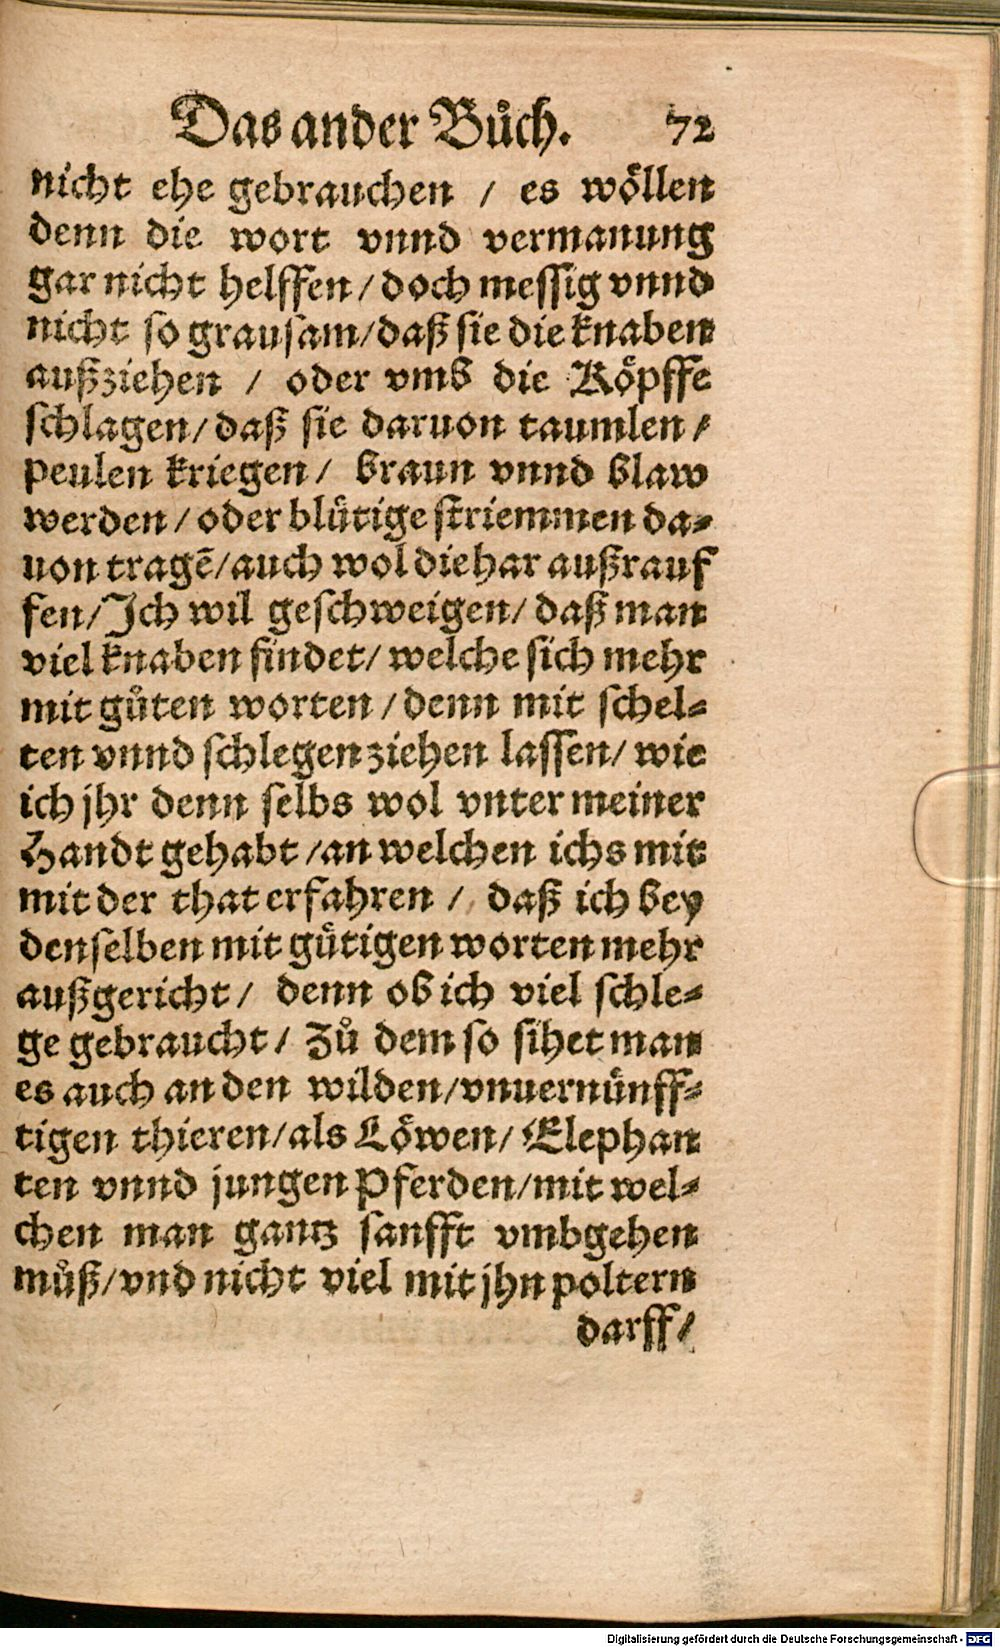 Das ander Bůch. 72
nicht ehe gebrauchen / es wöllen
denn die wort vnnd vermanung
gar nicht helffen / doch messig vnnd
nicht so grausam/daß sie die knaben
außziehen / oder vmb die Köpffe
schlagen/daß sie daruon taumlen/
peulen kriegen/ braun vnnd blaw
werden/oder blütige striemmen da⸗
uon tragẽ/auch wol die har außrauf
fen/Jch wil geschweigen/daß man
viel knaben findet/welche sich mehr
mit gůten worten/denn mit schel⸗
ten vnnd schlegen ziehen lassen/wie
ich jhr denn selbs wol vnter meiner
Handt gehabt/an welchen ichs mit
mit der that erfahren / daß ich bey
denselben mit gütigen worten mehr
außgericht/ denn ob ich viel schle⸗
ge gebraucht/ Zů dem so sihet man
es auch an den wilden/vnuernünff⸗
tigen thieren/als Löwen/Elephan
ten vnnd jungen Pferden/mit wel⸗
chen man gantz sanfft vmbgehen
můß/vnd nicht viel mit jhn poltern
darff/
Digitalisierung gefördert durch die Deutsche Forschungsgemeinschaft - DFG